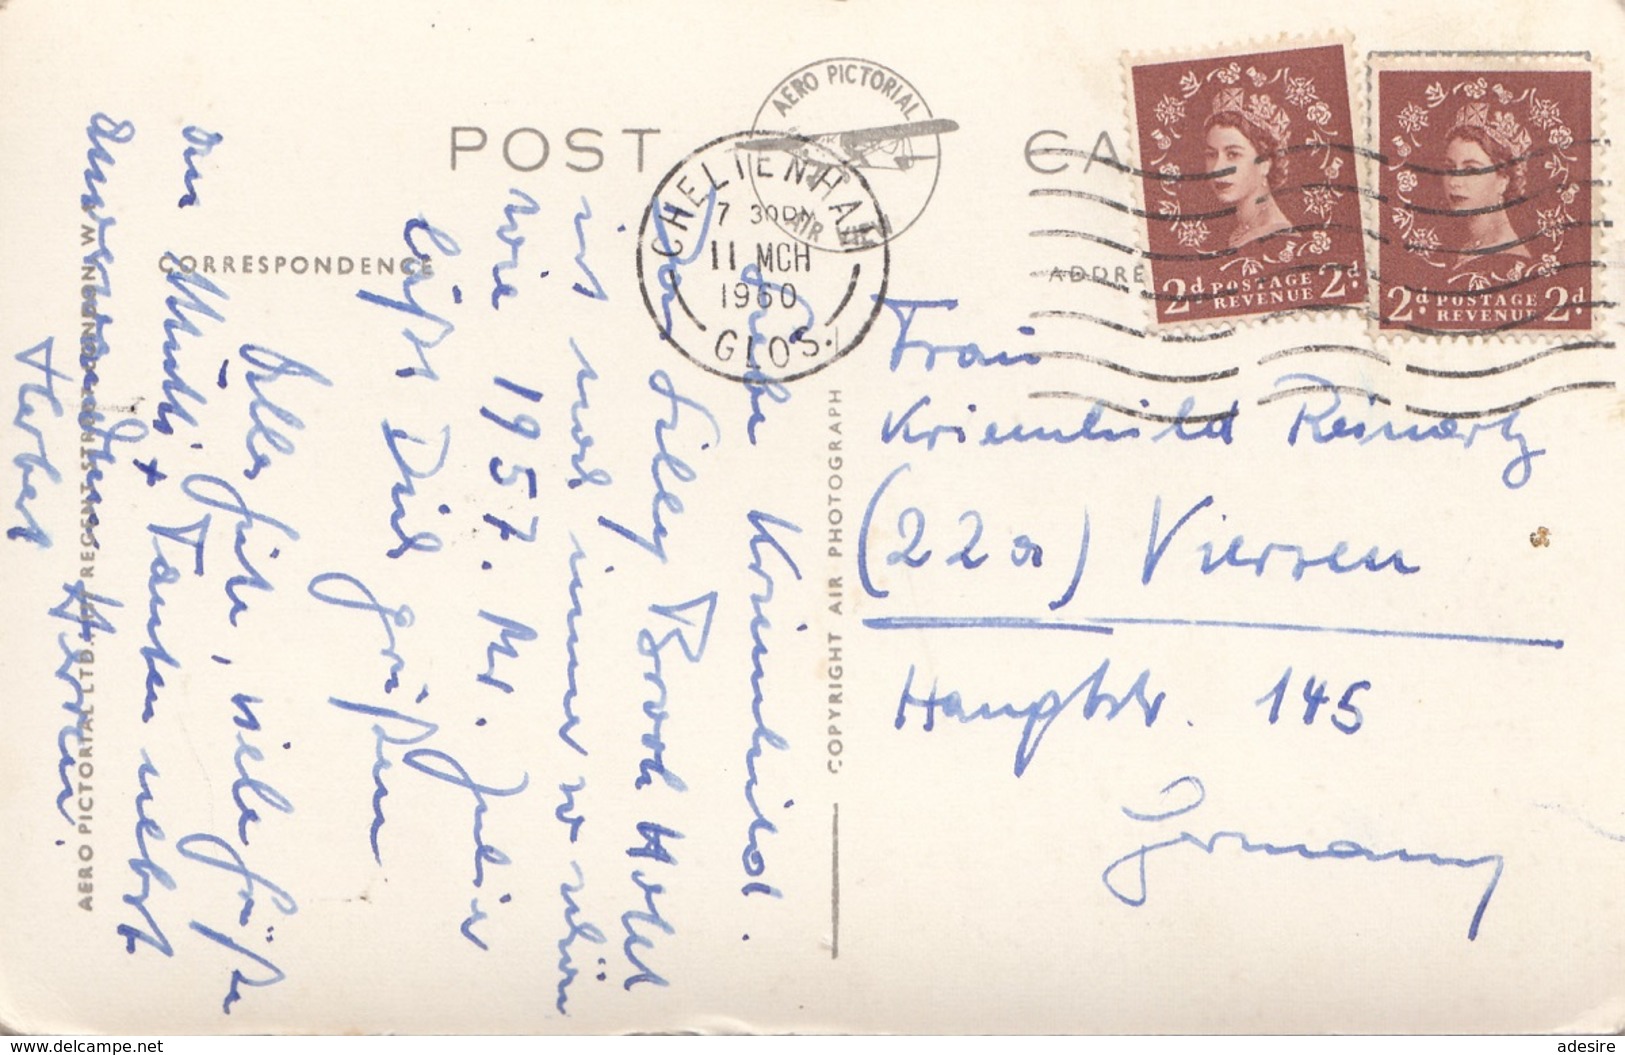 POST CA
AERO PICTORIAL
AIR
CHELTENHAM
7 30PM
11 MCH
1960
GLOS.
2d POSTAGE REVENUE 2d.
2d. POSTAGE REVENUE 2d.
CORRESPONDENCE
ADDRE
Liebe Kriemhild.
Das Lilley Brook Hotel
ist noch immer so schön
wie 1957. Mr. Julier
läßt Dich grüßen
Alles Gute, viele Grüße
an Mutti + Tanten nebst
anverwandten Herren
Herbert
AERO PICTORIAL LTD. REGENT STREET LONDON W.
COPYRIGHT AIR PHOTOGRAPH
Frau
Kriemhild Reinartz
(22a) Viersen
Hauptstr. 145
Germany
www.delcampe.net
adesire